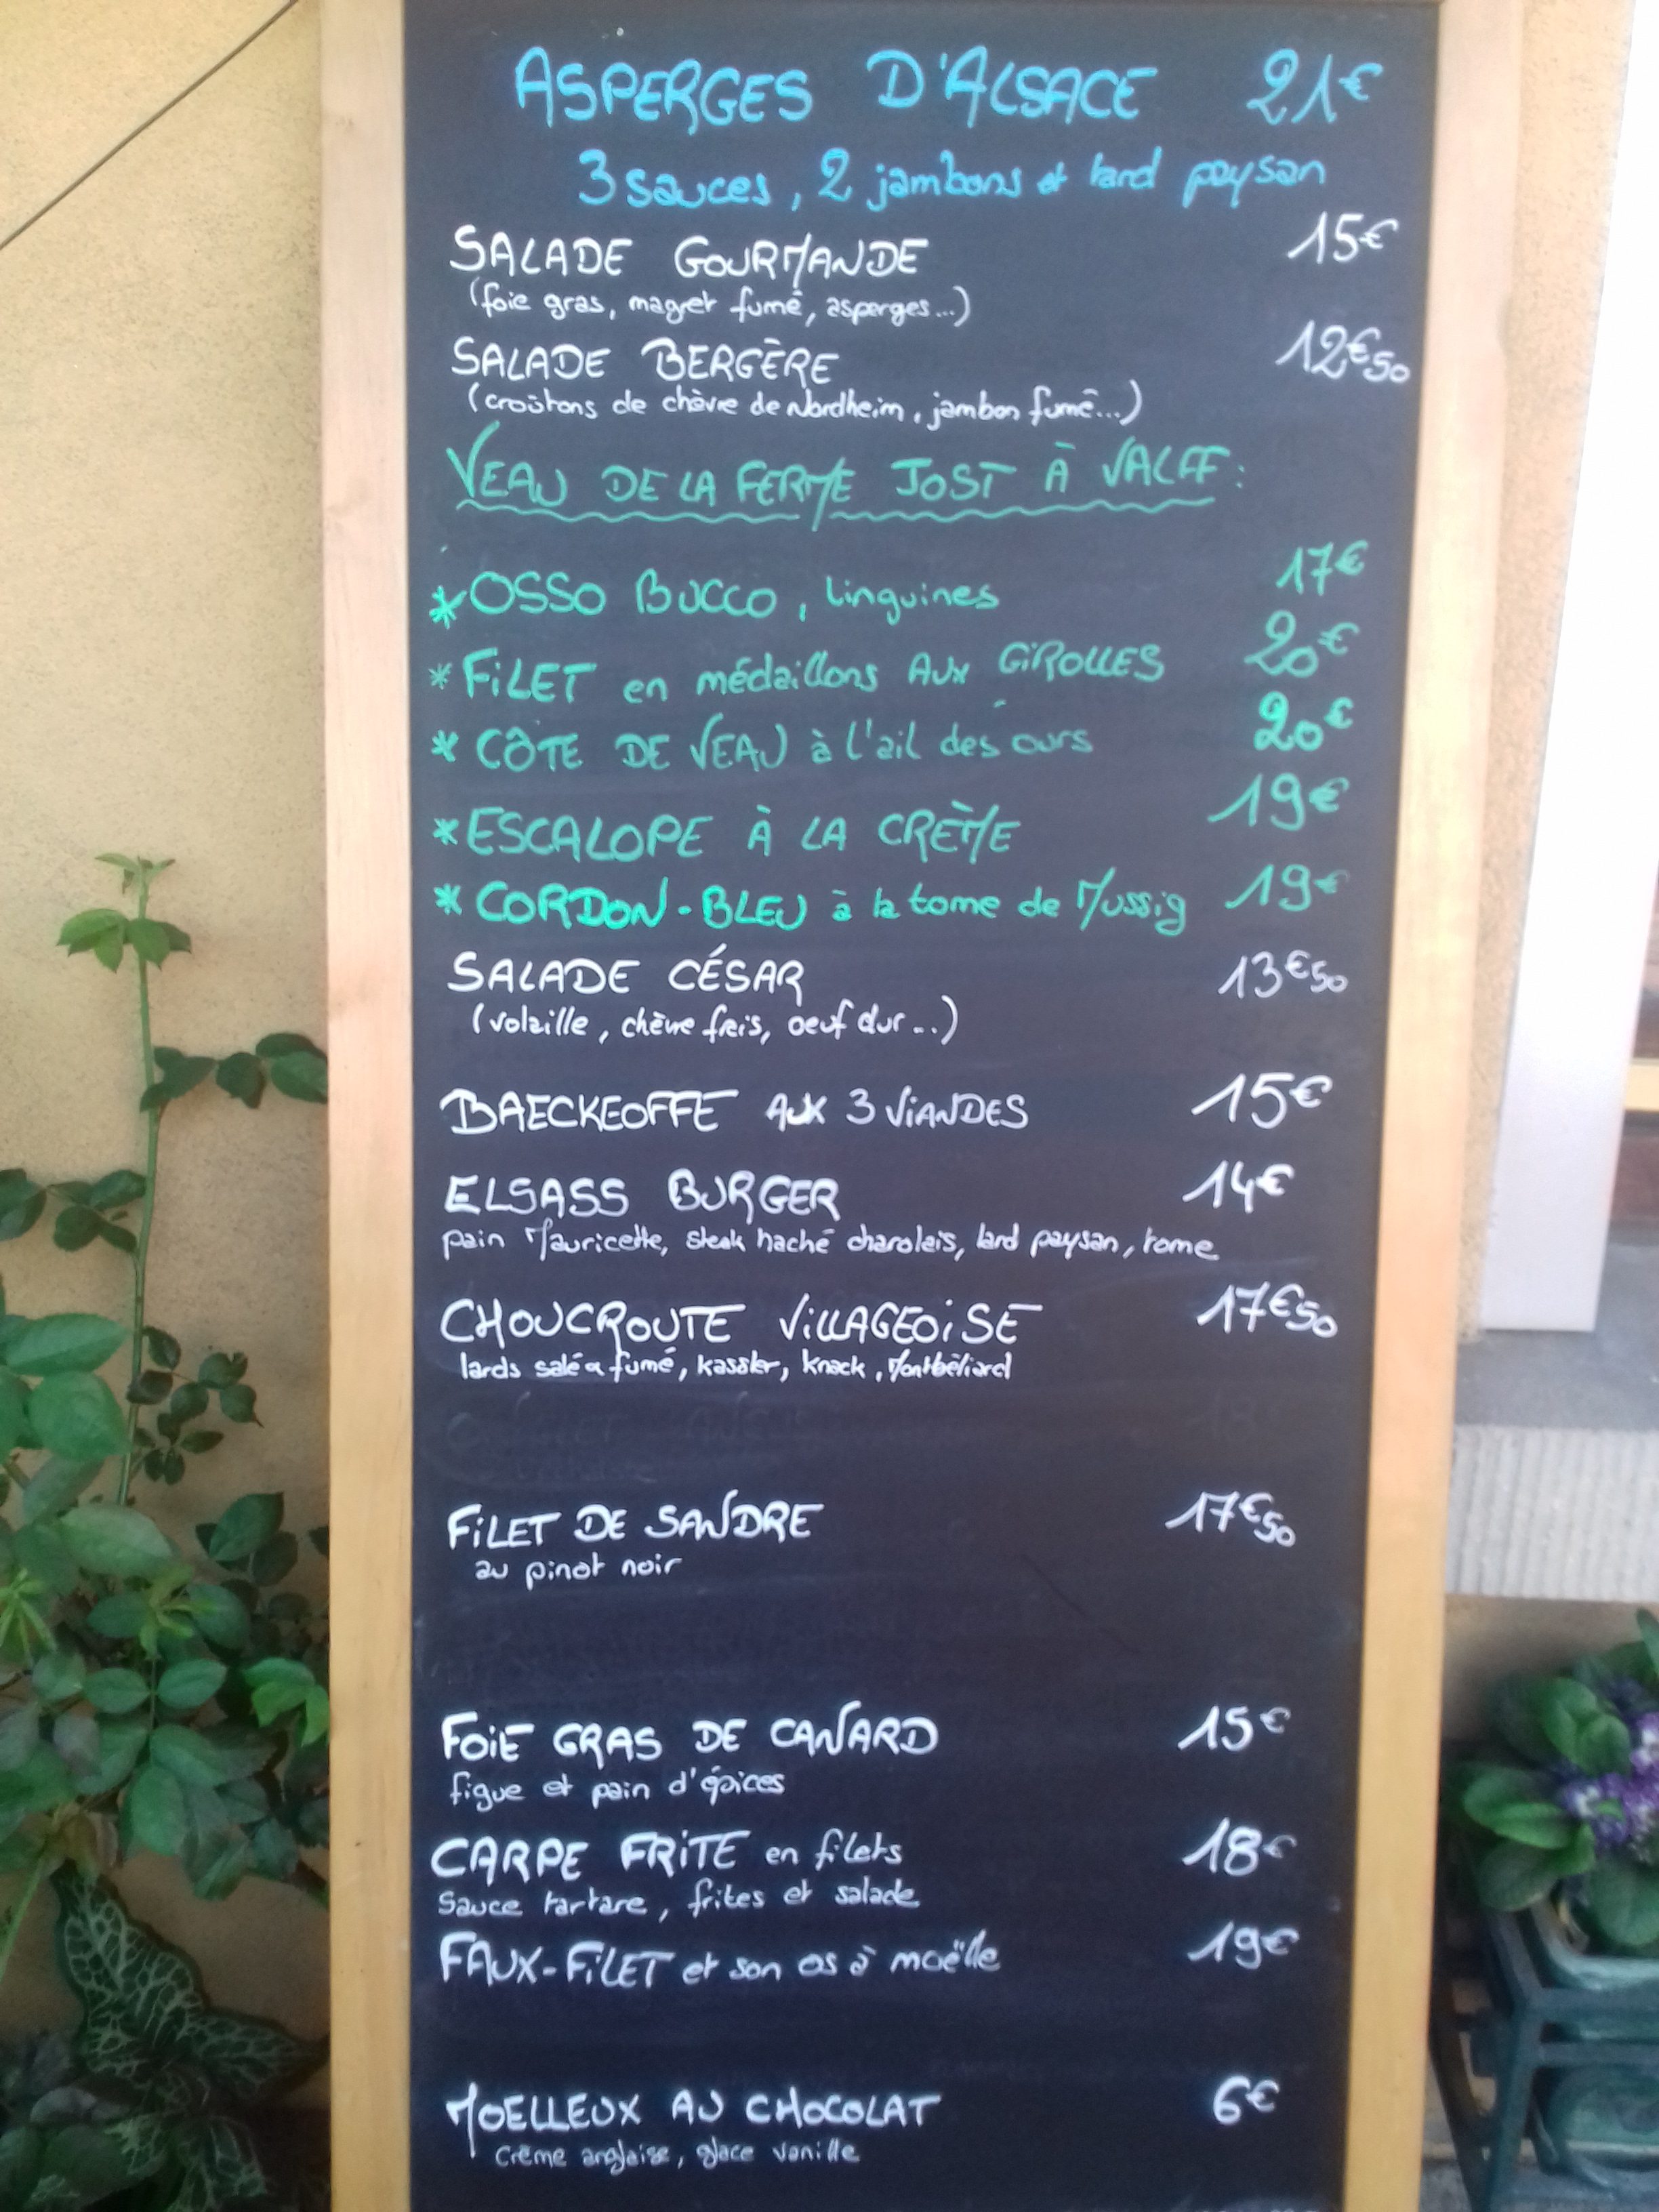 ASPERGES D'ALSACE 21€
3 sauces, 2 jambons et lard paysan
SALADE GOURMANDE 15€
(foie gras, magret fumé, asperges...)
SALADE BERGÈRE 12€50
(croûtons de chèvre de Nordheim, jambon fumé...)
VEAU DE LA FERME JOST À VALFF:
* OSSO BUCCO, linguines 17€
* FiLET en médaillons AUX GiROLLES 20€
* CÔTE DE VEAU à l'ail des ours 20€
* ESCALOPE À LA CRÈME 19€
* CORDON-BLEU à la tome de Mussig 19€
SALADE CÉSAR 13€50
(volaille, chèvre frais, oeuf dur...)
BAECKEOFFE AUX 3 ViANDES 15€
ELSASS BURGER 14€
pain Mauricette, steak haché charolais, lard paysan, tome
CHOUCROUTE ViLLAGEOiSE 17€50
lards salé & fumé, kassler, knack, Montbéliard
FiLET DE SANDRE 17€50
au pinot noir
FOiE GRAS DE CANARD 15€
figue et pain d'épices
CARPE FRiTE en filets 18€
Sauce tartare, frites et salade
FAUX-FiLET et son os à moëlle 19€
MOELLEUX AU CHOCOLAT 6€
Crème anglaise, glace vanille